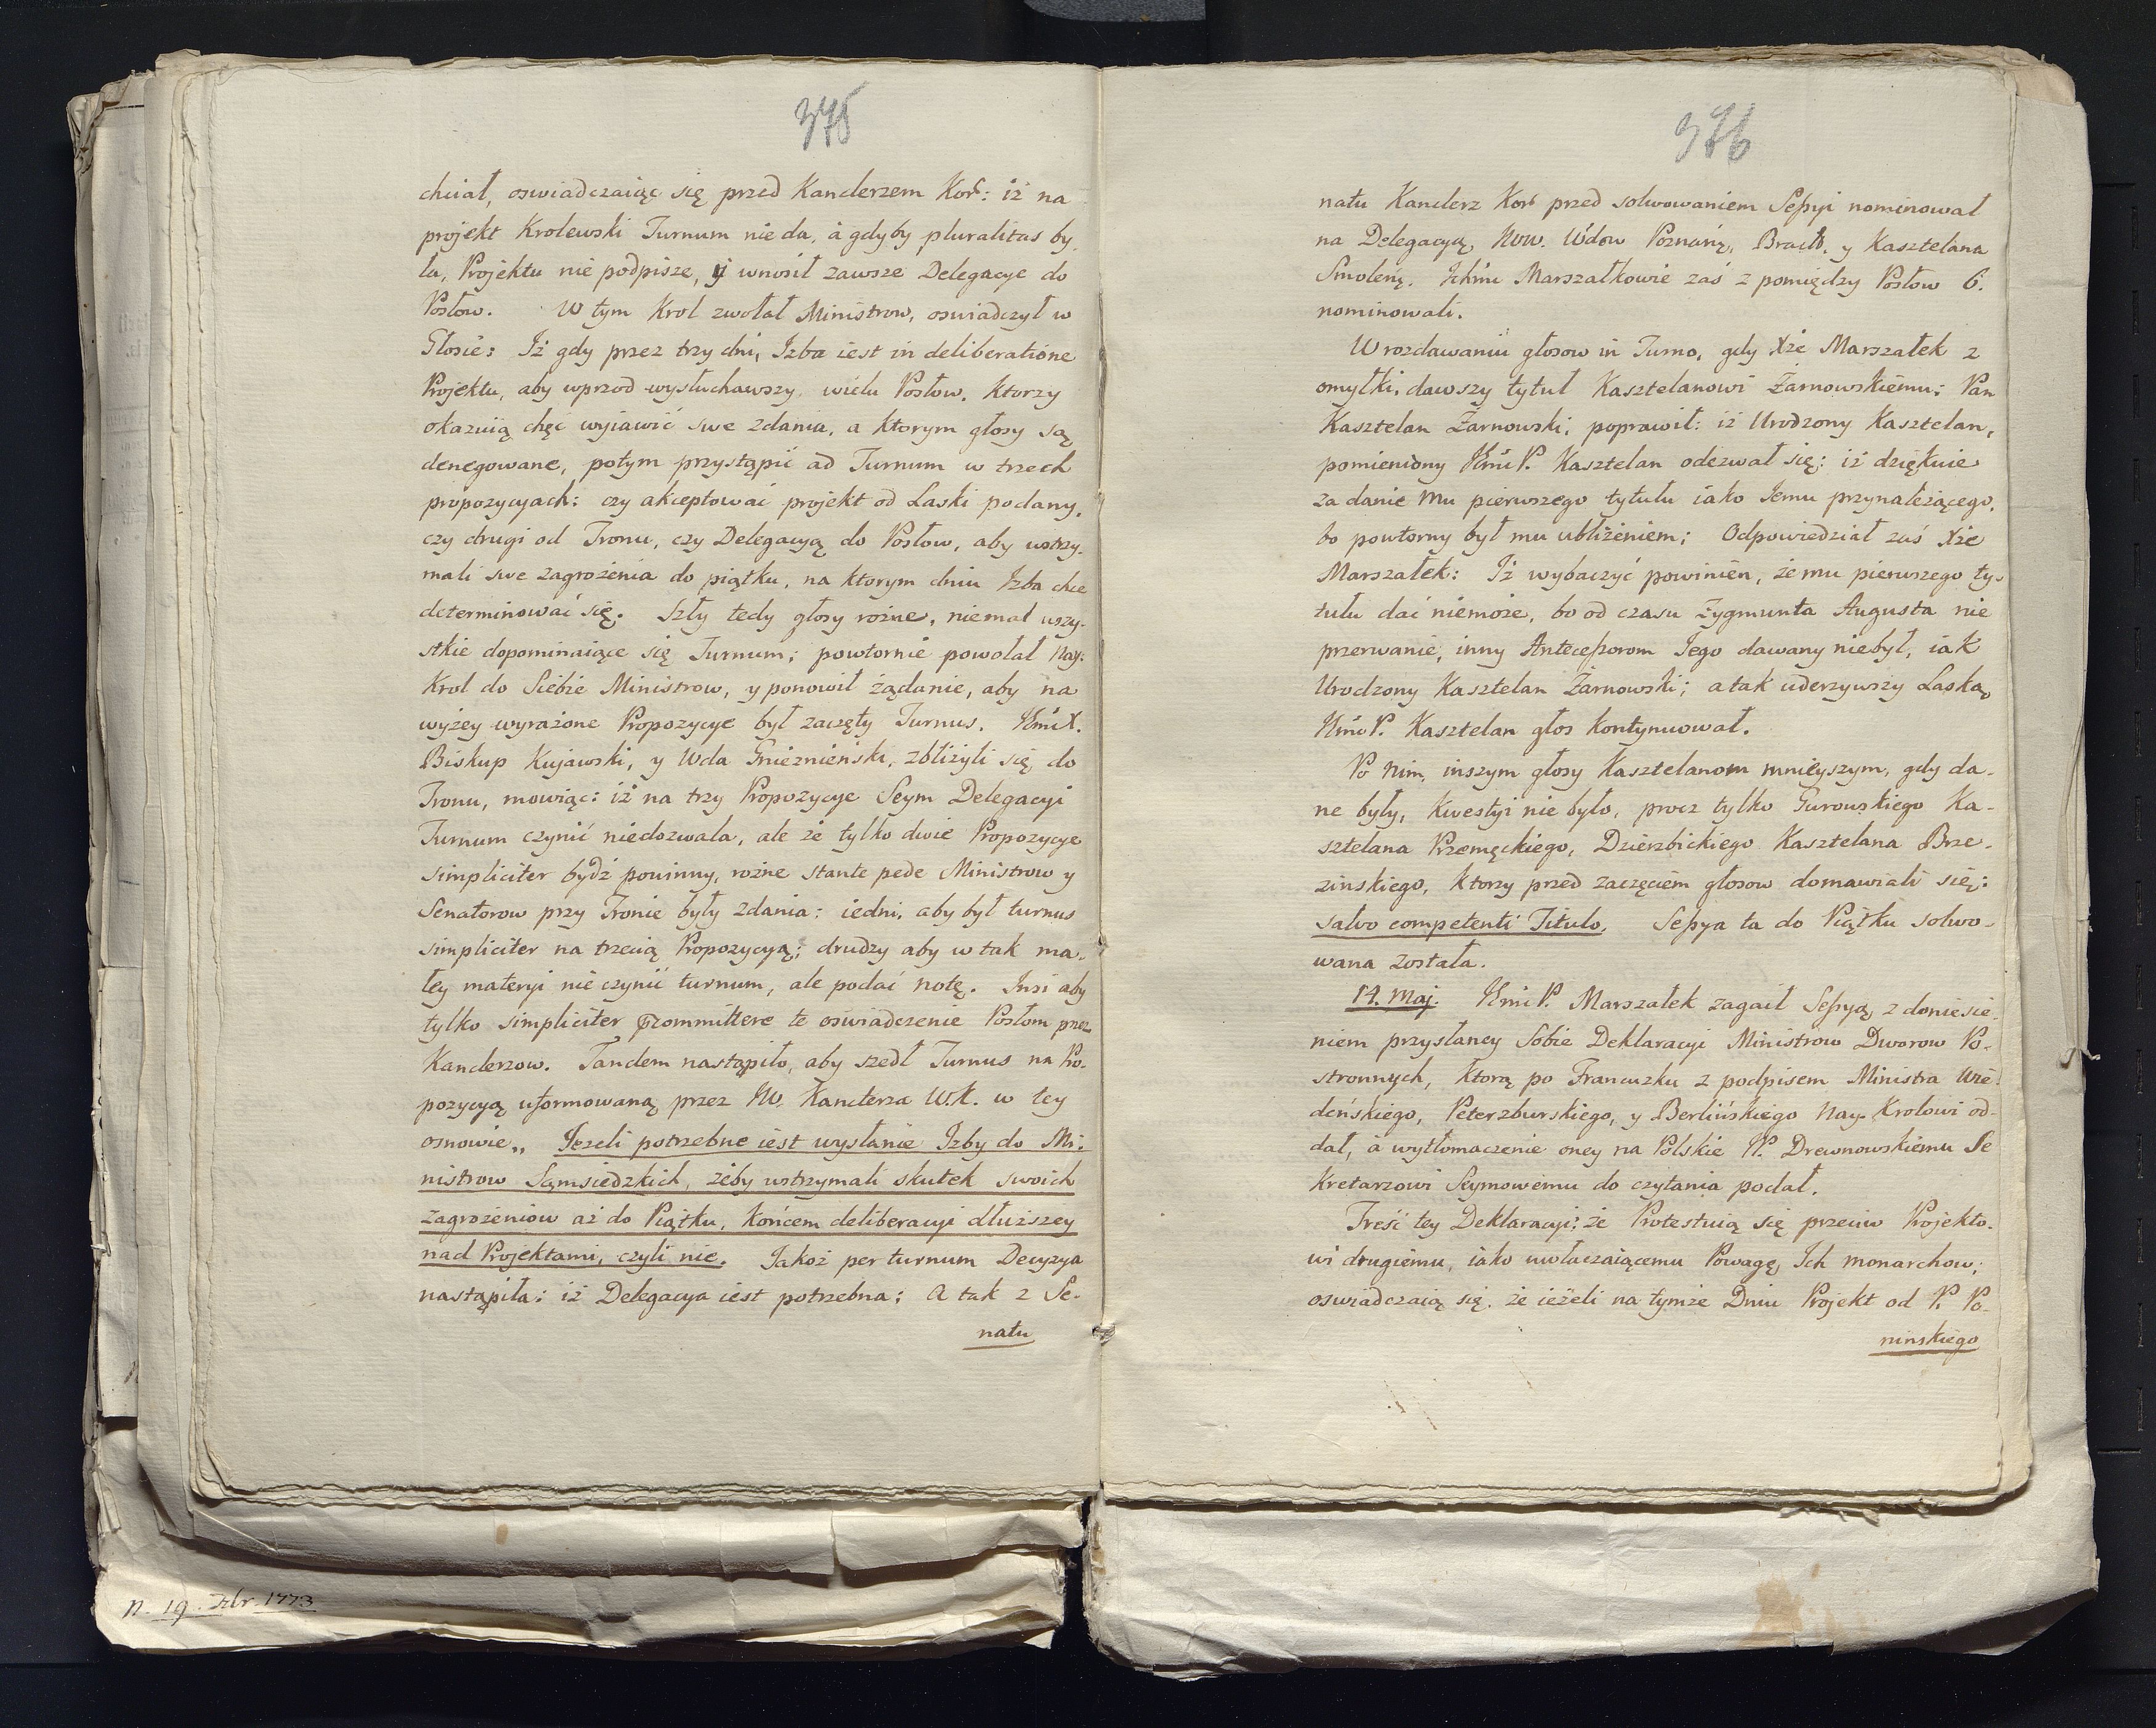 375
chciał, oswiadczaiąc się przed Kanclerzem Kor: iż na
projekt Krolewski Turnum nie da, à gdyby pluralitas by
ła, Projektu nie podpisze, ÿ wnosił zawsze Delegacye do
Posłow. W tym Krol zwołał Ministrow, oswiadczył w
Głosie: Iż gdy przez trzy dni, Izba iest in deliberatione
Projektu, aby wprzod wysłuchawszy wielu Posłow, Ktorzy
okazuią chęć wyiawić swe zdania, a ktorym głosy są
denegowane, potym przystąpić ad Turnum w trzech
propozycyach: czy akceptować projekt od Laski podany,
czy drugi od Tronu, czy Delegacyą do Posłow, aby wstrzy-
mali swe zagrożenia do piątku, na ktorym dniu Izba chce
determinować się. Szły tedy głosy rożne, niemal wszy-
stkie dopominaiące się Turnum; powtornie powołał Nay:
Krol do Siebie Ministrow, y ponowił żądanie, aby na
wyżey wyrażone Propozycye był zaczęty Turnus. JKmć X.
Biskup Kujawski, y Wda Gnieznieński, zbliżyli się do
Tronu, mowiąc: iż na trzy Propozycye Seym Delegacyi
Turnum czynić niedozwala, ale że tylko dwie Propozycye
simpliciter bydź powinny, rożne stante pede Ministrow y
Senatorow przy Tronie były zdania: iedni, aby był turnus
simpliciter na trzecią Propozycyą; drudzy aby w tak ma-
łey materyi nie czynić turnum, ale podać notę. Insi aby
tylko simpliciter committere te oświadczenie Posłom przez
Kanclerzow. Tandem nastąpiło, aby szedł Turnus na Pro-
pozycyą uformowaną przez JW. Kanclerza W.K. w tey
osnowie„ Jeżeli potrzebne iest wysłanie Izby do Mi-
nistrow Sąmsiedzkich, żeby wstrzymali skutek swoich
zagrożeniow aż do Piątku, końcem deliberacyi dłuższey
nad Projektami, czyli nie. Jakoż per turnum Decyzya
nastąpiła: iż Delegacya iest potrzebna; A tak z Se-
natu
n. 19. 7br. 1773
376
natu Kanclerz Kor przed solwowaniem Sessyi nominował
na Delegacyą, Wdow Poznań, y Kasztelana
Smoleń. Ichmć Marszałkowie zaś z pomiędzy Posłow 6.
nominowali.
W rozdawaniu głosow in Turno, gdy Xże Marszałek z
omyłki, dawszy tytuł Kasztelanowi Żarnowskiemu: Pan
Kasztelan Żarnowski; poprawił: iż Urodzony Kasztelan,
pomieniony JKmć P. Kasztelan odezwał się: iż dziękuie
za danie mu pierwszego tytułu iako Jemu przynależącego,
bo powtorny był mu ubliżeniem; Odpowiedział zaś Xże
Marszałek: Iż wybaczyć powinien, że mu pierwszego ty-
tułu dać niemoże, bo od czasu Zygmunta Augusta nie
przerwanie, inny Antecessorom Jego dawany niebył, iak
Urodzony Kasztelan Żarnowski; a tak uderzywszy Laską
JKmć P. Kasztelan głos kontynuował.
Po nim, inszym głosy Kasztelanom mnieyszym, gdy da-
ne były, kwestyi nie było, procz tylko Gurowskiego Ka-
sztelana Przemęckiego, Dzierzbickiego Kasztelana Brze-
zinskiego, ktorzy przed zaczęciem głosow domawiali się:
salvo competenti Titulo. Sessya ta do Piątku solwo-
wana została.
14. Maj. JKmć P. Marszałek zagaił Sessyą, z doniesie-
niem przysłaney Sobie Deklaracyi Ministrow Dworow Po-
stronnych, ktorą po Francuzku z podpisem Ministra Wie-
deńskiego, Peterzburskiego, y Berlińskiego Nay. Krolowi od-
dał, à wytłomaczenie oney na Polskie JP. Drewnowskiemu Se
kretarzowi Seymowemu do czytania podał.
Treść tey Deklaracyi: że Protestuią się przeciw Projekto-
wi drugiemu, iako uwłaczaiącemu Powagę Ich monarchow;
oswiadczaią się, że ieżeli na tymże Dniu Projekt od P. Po-
ninskiego